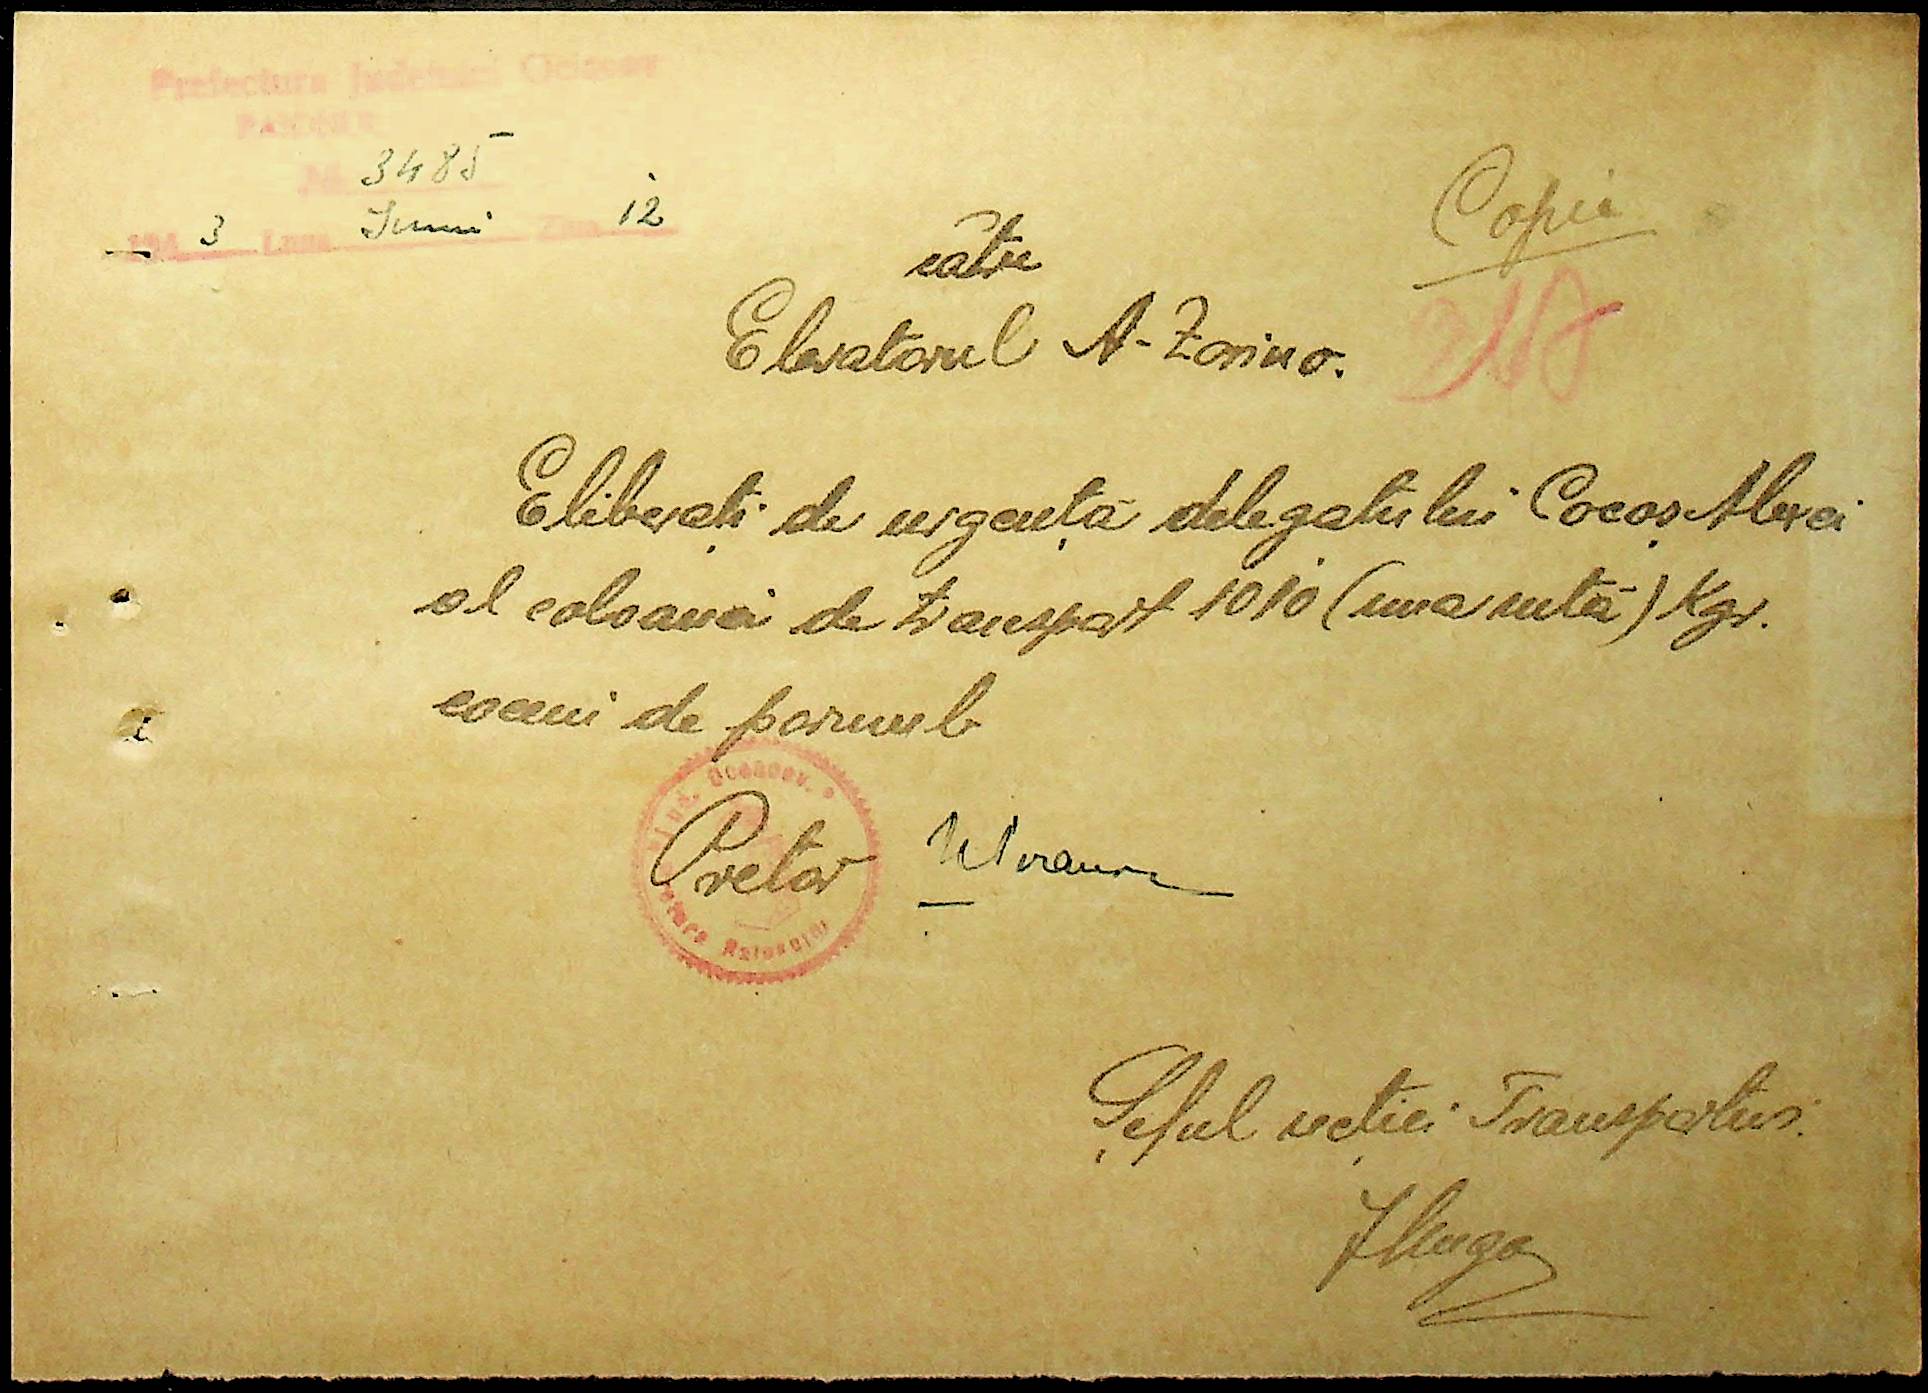 Prefectura Județului Oceacov
Nr. 3485
194 3 Luna Iunii Ziua 12
Copie
către
Elevatorul A-Zorino.
218
Eliberați de urgență delegatului Cocoș Alexei
al coloanei de transport 1010 (una sută) Kgr.
coceni de porumb
Jud. Oceacov.
Pretor
Șeful secției Transportur.